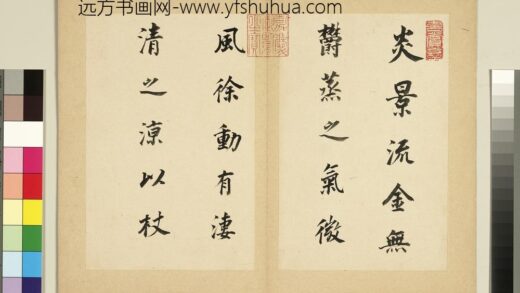 远方书画网-www.yfshuhua.com
炎景流金無
欝蒸之氣微
風徐動有淒
清之涼以杖